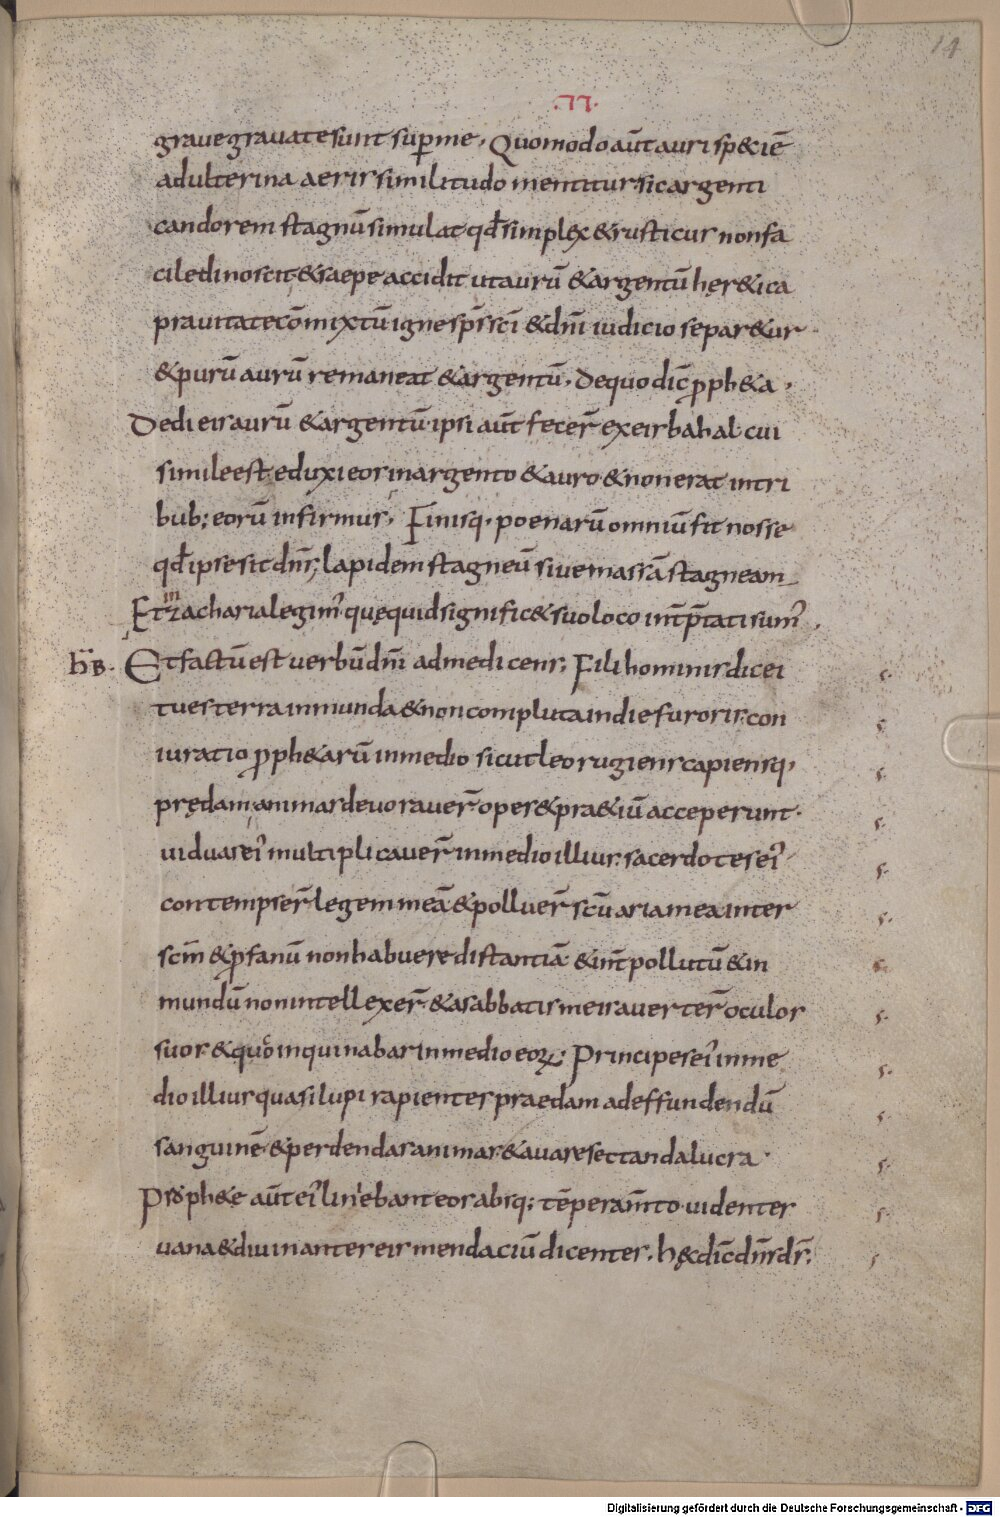 14
.77.
grauegrauatesunt sup̄me. Quomodo aūt auri sp&iē
adulterina aeris similitudo mentitur sic argenti
candorem stagnū simulat qđ simplex &rusticus non fa
cile dinoscit &saepe accidit ut aurū &argentū her&ica
prauitate cōmixtū igne sp̄s sc̄i &dn̄i iudicio separ&ur
&purū aurū remaneat &argentū. De quo dic̄ p̄ph&a.
Dedi eis aurū &argentū ipsi aūt fecer̄ ex eis bahal cui
simile est eduxi eos in argento &auro &non erat in tri
bub; eorū infirmus. Finisq. poenarū omniū fit nosse
qđ ipse sit dn̄s; lapidem stagneū siue massā stagneam
Et in zacharia legim' quę quid signific& suo loco int̄p̄tati sum'.
hB. Et factū est uerbū dn̄i ad me dicens; Fili hominis dic ei
tu es terra inmunda &non compluta in die furoris. con
iuratio p̄ph&arū in medio sicut leo rugiens capiensq,
prędam, animas deuorauer̄ opes &pra&iū acceperunt.
uiduas ei' multiplicauer̄ in medio illius. sacerdotes ei'
contempser̄ legem meā &polluer̄ sc̄uaria mea inter
scm̄ &p̄fanū non habuere distantiā &int̄ pollutū &in
mundū non intellexer̄. &a sabbatis meis auerter̄ oculos
suos &quōinquinabar in medio eoꝝ; Principes ei' in me
dio illius quasi lupi rapientes praedam ad effundendū
sanguinē &perdendas animas &auare sectanda lucra.
Proph&e aūt ei' linebant eos absq; tēperam̄to uidentes
uana &diuinantes eis mendaciū dicentes. hęc dic̄ dn̄s ds̄.
Digitalisierung gefördert durch die Deutsche Forschungsgemeinschaft - DFG